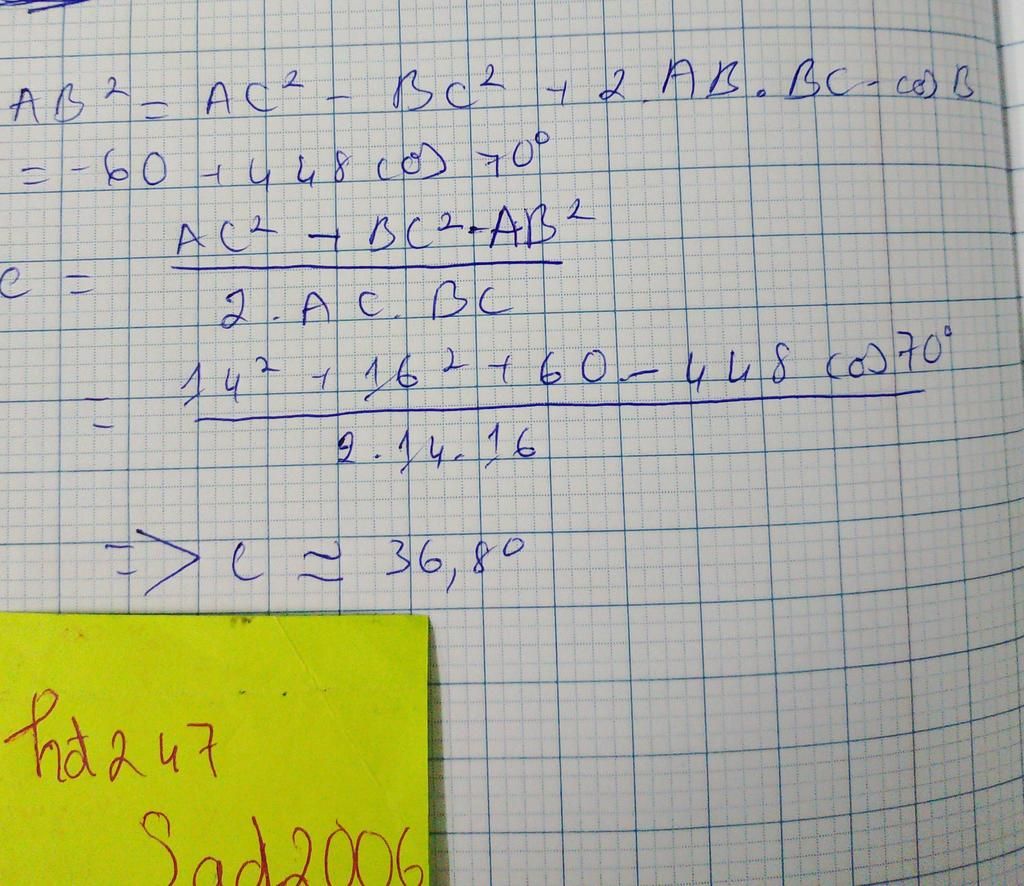 AB² = AC² - BC² + 2.AB.BC.cosB
= -60 + 448 cos 70°
C = (AC² + BC² - AB²) / (2.AC.BC)
= (14² + 16² + 60 - 448 cos 70°) / (2.14.16)
=> C ≈ 36,8°
hd247
Sad2006